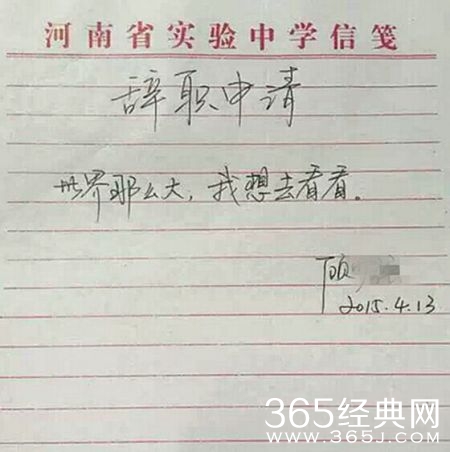 河南省实验中学信笺
辞职申请
世界那么大，我想去看看。
顾
2015.4.13
365经典网
WWW.365J.COM